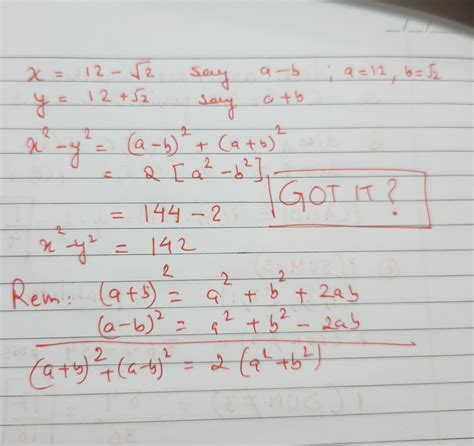 x = 12 - √2 say a-b ; a=12, b=√2
y = 12 + √2 say a+b
x² - y² = (a-b)² + (a+b)²
= 2 [a² - b²]
GOT IT?
= 144 - 2
x² - y² = 142
Rem: (a+b)² = a² + b² + 2ab
(a-b)² = a² + b² - 2ab
(a+b)² + (a-b)² = 2 (a² + b²)